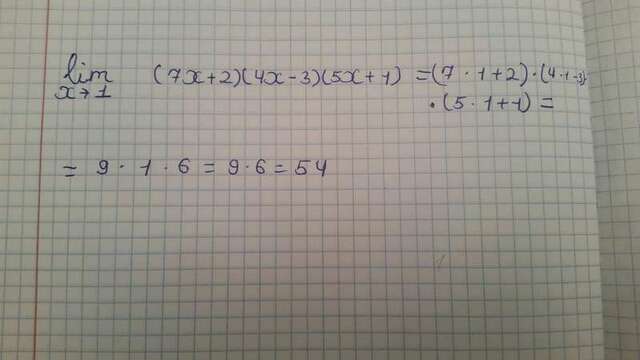 lim (7x+2)(4x-3)(5x+1) =(7·1+2)·(4·1-3)
x→1 ·(5·1+1)=
= 9·1·6=9·6=54